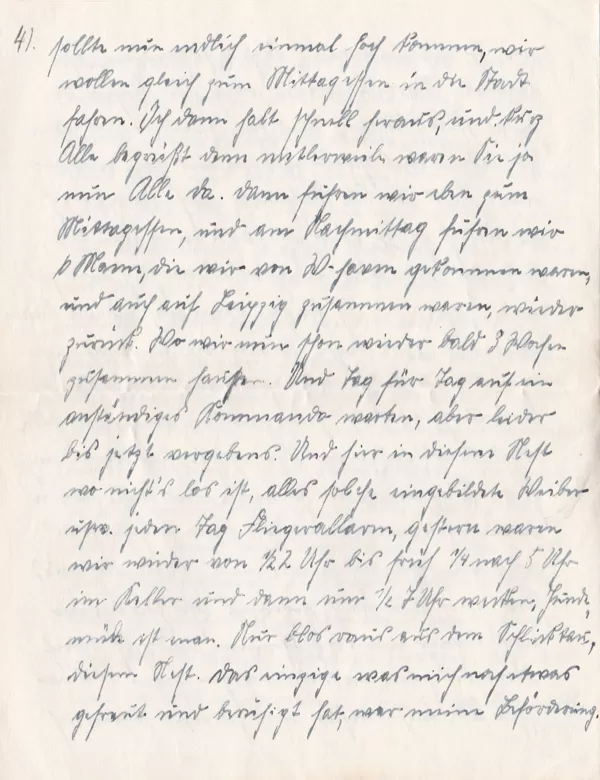 4).
sollte nun endlich einmal hoch kommen, wir
wollen gleich zum Mittagessen in die Stadt
fahren. Ich dann halt schnell heraus, und kurz
Alle begrüßt denn mitlerweile waren Sie ja
nun Alle da. Dann fuhren wir eben zum
Mittagessen, und am Nachmittag fuhren wir
6 Mann, die wir von W-haven gekommen waren,
und auch auf Leipzig zusammen waren, wieder
zurück. Wo wir nun schon wieder bald 3 Wochen
zusammen hausen. Und Tag für Tag auf ein
anständiges Kommando warten, aber leider
bis jetzt vergebens. Und hier in diesem Nest
wo nicht's los ist, alles solche eingebildete Weiber
usw. jeden Tag Fliegerallarm, gestern waren
wir wieder von ½2 Uhr bis früh ¼ nach 5 Uhr
im Keller und dann um ½ 7 Uhr wecken, Hunde-
müde ist man. Nur blos raus aus dem
diesem Nest. Das einzige was mich noch etwas
gefreut und beruhigt hat, war meine Beförderung.